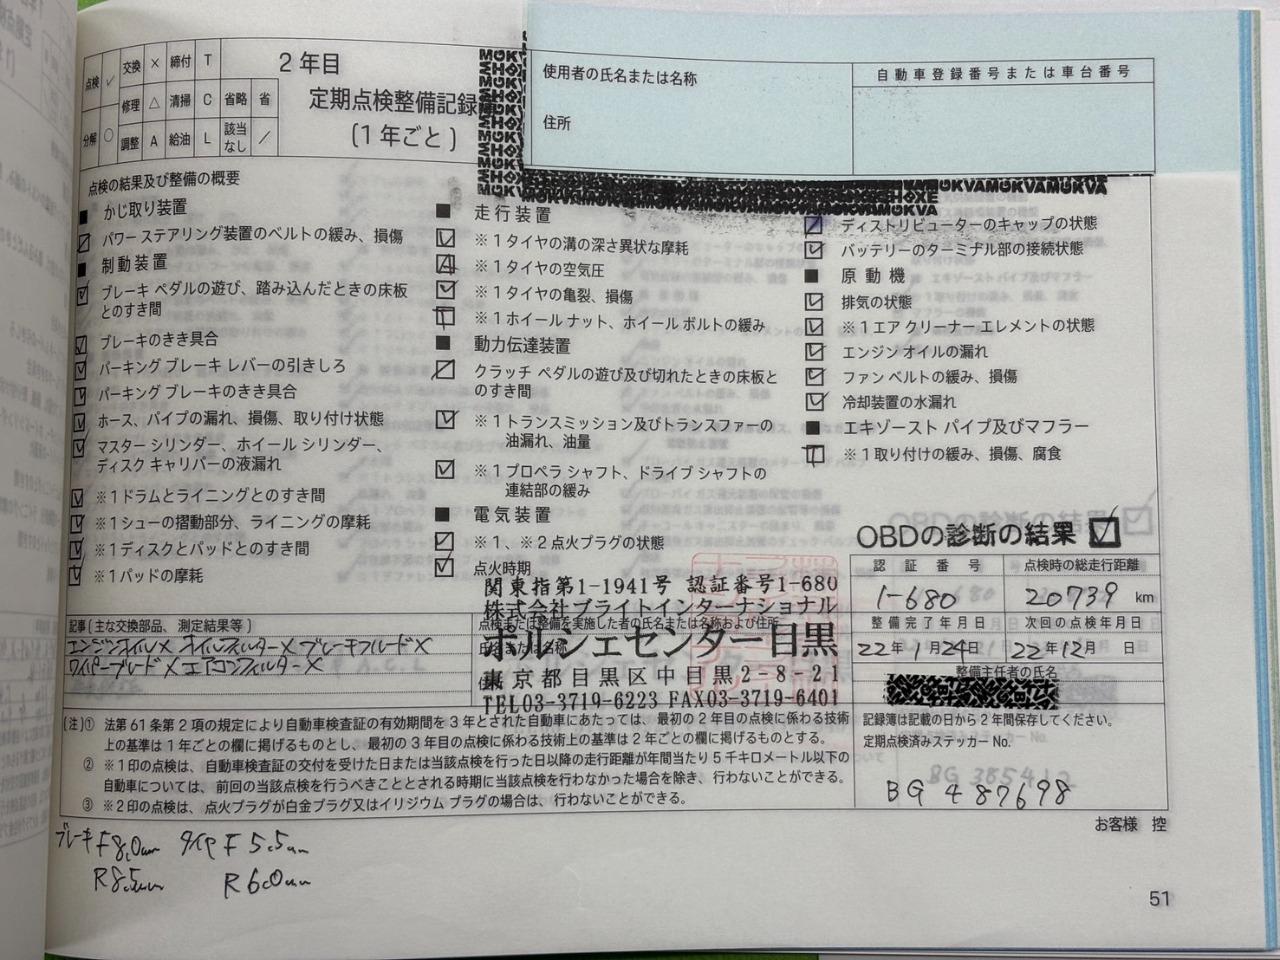 点検 ✓ 交換 × 締付 T
修理 △ 清掃 C 省略 省
分解 ○ 調整 A 給油 L 該当なし ／
2年目
定期点検整備記録
(1年ごと)
使用者の氏名または名称
住所
自動車登録番号または車台番号
点検の結果及び整備の概要
■ かじ取り装置
パワー ステアリング装置のベルトの緩み、損傷
■ 制動装置
ブレーキ ペダルの遊び、踏み込んだときの床板
とのすき間
ブレーキのきき具合
パーキング ブレーキ レバーの引きしろ
パーキング ブレーキのきき具合
ホース、パイプの漏れ、損傷、取り付け状態
マスター シリンダー、ホイール シリンダー、
ディスク キャリパーの液漏れ
※1ドラムとライニングとのすき間
※1シューの摺動部分、ライニングの摩耗
※1ディスクとパッドとのすき間
※1パッドの摩耗
■ 走行装置
※1タイヤの溝の深さ異状な摩耗
※1タイヤの空気圧
※1タイヤの亀裂、損傷
※1ホイール ナット、ホイール ボルトの緩み
■ 動力伝達装置
クラッチ ペダルの遊び及び切れたときの床板と
のすき間
※1トランスミッション及びトランスファーの
油漏れ、油量
※1プロペラ シャフト、ドライブ シャフトの
連結部の緩み
■ 電気装置
※1、※2点火プラグの状態
点火時期
ディストリビューターのキャップの状態
バッテリーのターミナル部の接続状態
■ 原動機
排気の状態
※1エア クリーナー エレメントの状態
エンジン オイルの漏れ
ファン ベルトの緩み、損傷
冷却装置の水漏れ
■ エキゾースト パイプ及びマフラー
※1取り付けの緩み、損傷、腐食
OBDの診断の結果
認証番号 点検時の総走行距離
1-680 20739 km
整備完了年月日 次回の点検年月日
22年 1月 24日 22年 12月 日
整備主任者の氏名
関東指第1-1941号 認証番号1-680
株式会社ブライトインターナショナル
点検または整備を実施した者の氏名または名称および住所
ポルシェセンター目黒
東京都目黒区中目黒2-8-21
TEL03-3719-6223 FAX03-3719-6401
記事(主な交換部品、測定結果等)
エンジンオイル× オイルフィルター× ブレーキフルード×
ワイパーブレード× エアコンフィルター×
(注)① 法第61条第2項の規定により自動車検査証の有効期間を3年とされた自動車にあたっては、最初の2年目の点検に係わる技術
上の基準は1年ごとの欄に掲げるものとし、最初の3年目の点検に係わる技術上の基準は2年ごとの欄に掲げるものとする。
② ※1印の点検は、自動車検査証の交付を受けた日または当該点検を行った日以降の走行距離が年間当たり5千キロメートル以下の
自動車については、前回の当該点検を行うべきこととされる時期に当該点検を行わなかった場合を除き、行わないことができる。
③ ※2印の点検は、点火プラグが白金プラグ又はイリジウム プラグの場合は、行わないことができる。
記録簿は記載の日から2年間保存してください。
定期点検済みステッカー No.
BG 487698
お客様 控
ブレーキ F 8.0mm タイヤ F 5.5mm
R 8.5mm R 6.0mm
51